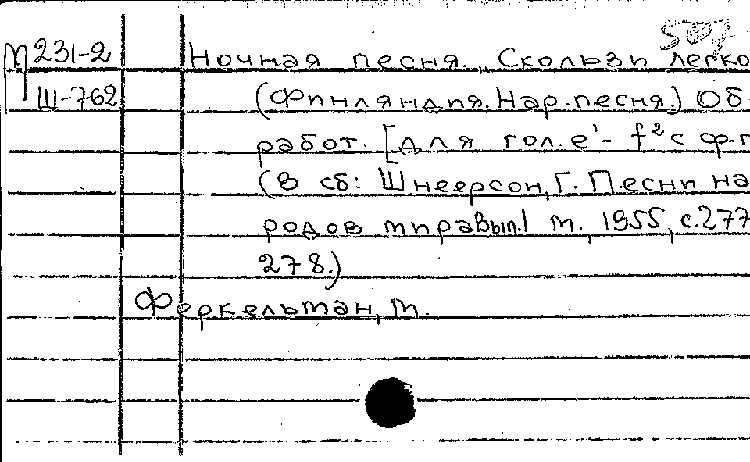 М 231-2 Ночная песня. Скользи легко
Ш-762 (Финляндия. Нар. песня.) Об-
работ. [Для гол. e¹- f² с ф-п
(в сб: Шнеерсон, Г. Песни на-
родов мира Вып.1 м., 1955, с.277
278.)
Феркельман, м.